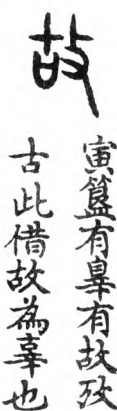 故
寅簋有辠有故攷
古此借故為辜也